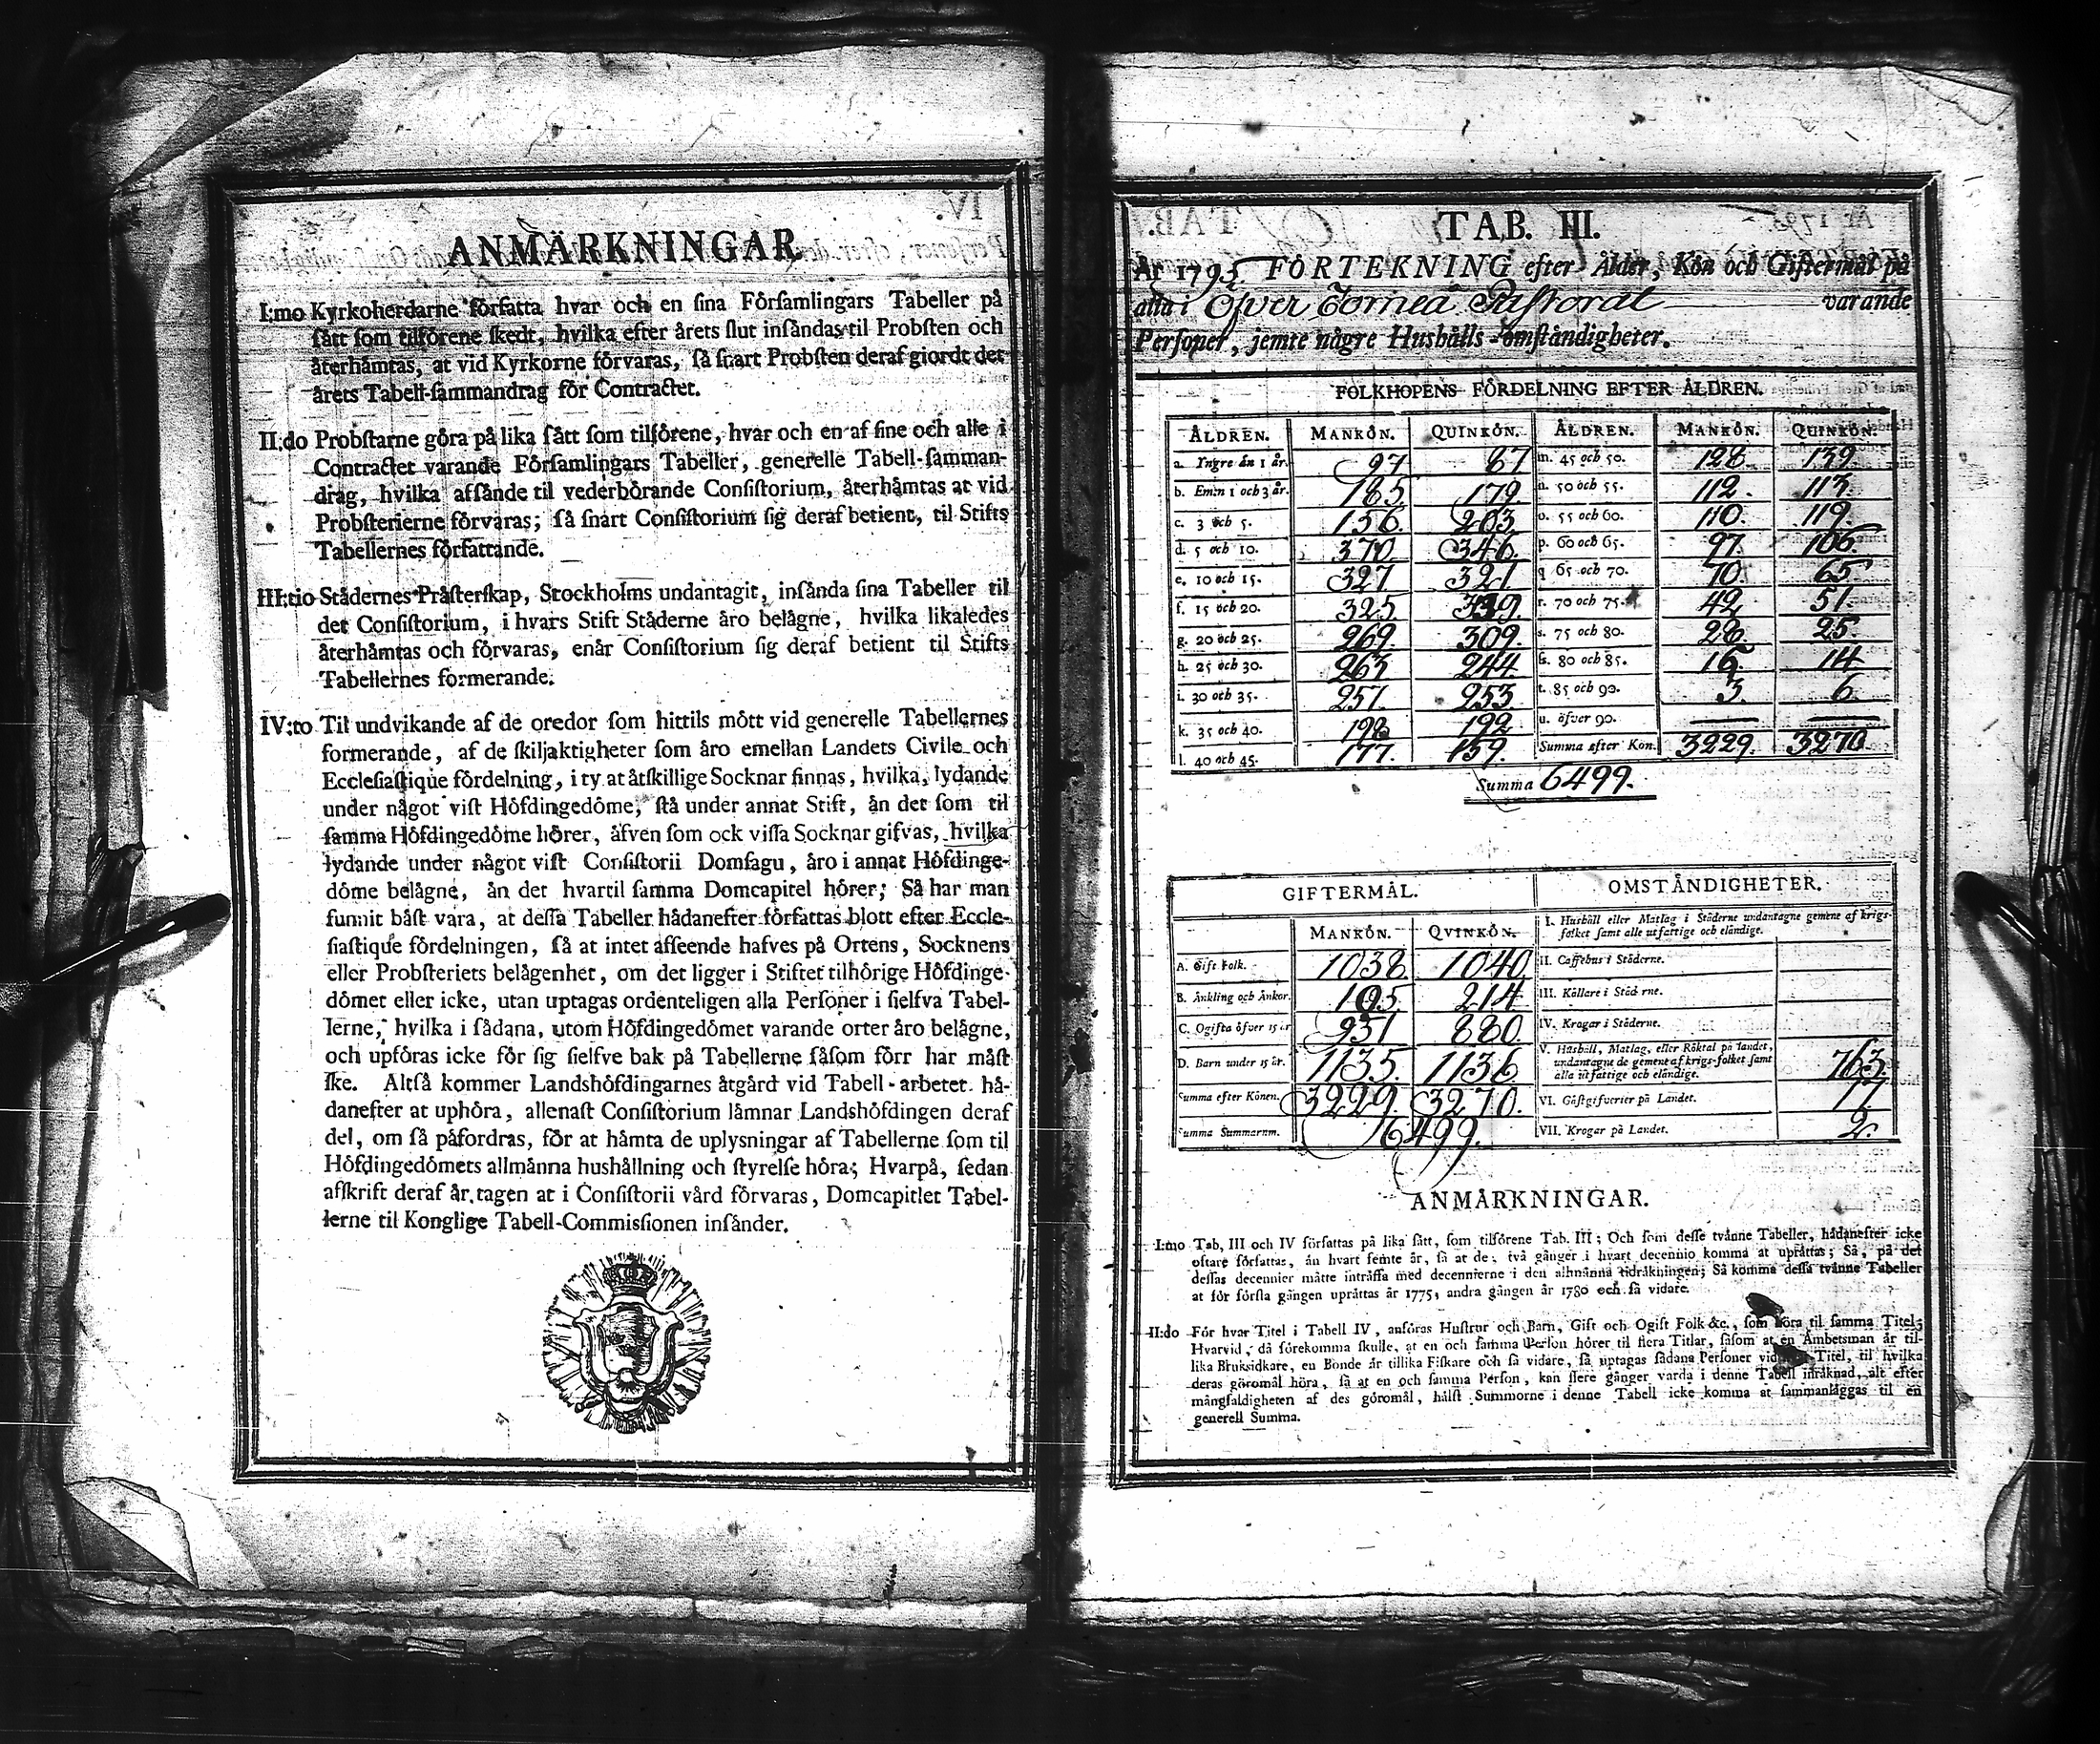 ANMÄRKNINGAR
I:mo Kyrkoherdarne författa hvar och en sina Församlingars Tabeller på
sätt som tilförene skedt, hvilka efter årets slut insändas til Probsten och
återhämtas, at vid Kyrkorne förvaras, så snart Probsten deraf giordt det
årets Tabell-sammandrag för Contractet.
II:do Probstarne göra på lika sätt som tilförene, hvar och en af sine och alle i
Contractet varande Församlingars Tabeller, generelle Tabell-samman-
drag, hvilka afsände til vederbörande Consistorium, återhämtas at vid
Probsterierne förvaras; så snart Consistorium sig deraf betient, til Stifts
Tabellernes författande.
III:tio Städernes Prästerskap, Stockholms undantagit, insända sina Tabeller til
det Consistorium, i hvars Stift Städerne äro belägne, hvilka likaledes
återhämtas och förvaras, enär Consistorium sig deraf betient til Stifts
Tabellernes formerande.
IV:to Til undvikande af de oredor som hittils mött vid generelle Tabellernes
formerande, af de skiljaktigheter som äro emellan Landets Civile och
Ecclesiastique fördelning, i ty at åtskillige Socknar finnas, hvilka, lydande
under något visst Höfdingedöme, stå under annat Stift, än det som til
samma Höfdingedöme hörer, äfven som ock vissa Socknar gifvas, hvilka
lydande under något vist Consistorii Domsagu, äro i annat Höfdinge-
döme belägne, än det hvartil samma Domcapitel hörer; Så har man
funnit bäst vara, at dessa Tabeller hädanefter författas blott efter Eccle-
siastique fördelningen, så at intet afseende hafves på Ortens, Socknens
eller Probsteriets belägenhet, om det ligger i Stiftet tilhörige Höfdinge-
dömet eller icke, utan uptagas ordenteligen alla Personer i sielfva Tabel-
lerne, hvilka i sådana, utom Höfdingedömet varande orter äro belägne,
och upföras icke för sig sielfve bak på Tabellerne såsom förr har måst
ske. Altså kommer Landshöfdingarnes åtgärd vid Tabell-arbetet hä-
danefter at uphöra, allenast Consistorium lämnar Landshöfdingen deraf
del, om så påfordras, för at hämta de uplysningar af Tabellerne som til
Höfdingedömets allmänna hushållning och styrelse höra; Hvarpå, sedan
afskrift deraf är tagen at i Consistorii vård förvaras, Domcapitlet Tabel-
lerne til Konglige Tabell-Commissionen insänder.
TAB. III.
År 1795 FÖRTEKNING efter Ålder, Kön och Giftermål på
alla i Öfver Torneå Pastorat varande
Personer, jemte någre Hushålls-omständigheter.
FOLKHOPENS FÖRDELNING EFTER ÅLDREN.
ÅLDREN. MANKÖN. QUINKÖN. ÅLDREN. MANKÖN. QUINKÖN.
a. Yngre än 1 år. 97 87 m. 45 och 50. 128 139
b. Emin 1 och 3 år. 185 179 n. 50 och 55. 112. 113.
c. 3 och 5. 156. 203 o. 55 och 60. 110. 119.
d. 5 och 10. 370 346. p. 60 och 65. 97. 106.
e. 10 och 15. 327 321 q 65 och 70. 70. 65
f. 15 och 20. 325 339. r. 70 och 75. 42 51.
g. 20 och 25. 269. 309. s. 75 och 80. 28. 25.
h. 25 och 30. 244. 80 och 85. 14
i. 30 och 35. 251. 253 t. 85 och 90. 3. 6
k. 35 och 40. 198 192 u. öfver 90.
l. 40 och 45. 177. 159. Summa efter Kön. 3229. 3270
Summa 6499.
GIFTERMÅL. OMSTÄNDIGHETER.
MANKÖN. QVINKÖN. I. Hushåll eller Matlag i Städerne undantagne gemene af krigs-
folket samt alle utfattige och eländige.
A. Gift Folk. 1038 1040 II. Caffehus i Städerne.
B. Änkling och Änkor. 105. 214 III. Källare i Städerne.
C. Ogifta öfver 15 år 951 880. IV. Krogar i Städerne.
D. Barn under 15 år. 1135. 1136 V. Hushåll, Matlag, eller Röktal på landet,
undantagne de gemene af krigs-folket samt
alla utfattige och eländige. 763.
Summa efter Könen. 3229. 3270. VI. Gästgifverier på Landet. 17
Summa Summarum. 6499. VII. Krogar på Landet. 2.
ANMÄRKNINGAR.
I:mo Tab. III och IV författas på lika sätt, som tilförene Tab. III; Och som desse tvänne Tabeller, hädanefter icke
oftare författas, än hvart femte år, så at de, två gånger i hvart decennio komma at uprättas; Så, på det
dessas decennier måtte inträffa med decennierne i den allmänna tidräkningen; Så komma dessa tvänne Tabeller
at för första gången uprättas år 1775, andra gången år 1780 och så vidare.
II:do För hvar Titel i Tabell IV, anföras Hustrur och Barn, Gift och Ogift Folk &c., som höra til samma Titel;
Hvarvid, då förekomma skulle, at en och samma Person hörer til flera Titlar, såsom at en Ämbetsman är til-
lika Bruksidkare, en Bonde är tillika Fiskare och så vidare, så uptagas sådana Personer vid Titel, til hvilka
deras göromål höra, så at en och samma Person, kan flere gånger varda i denne Tabell inräknad, alt efter
mångfaldigheten af des göromål, hälst Summorne i denne Tabell icke komma at sammanläggas til en
generell Summa.